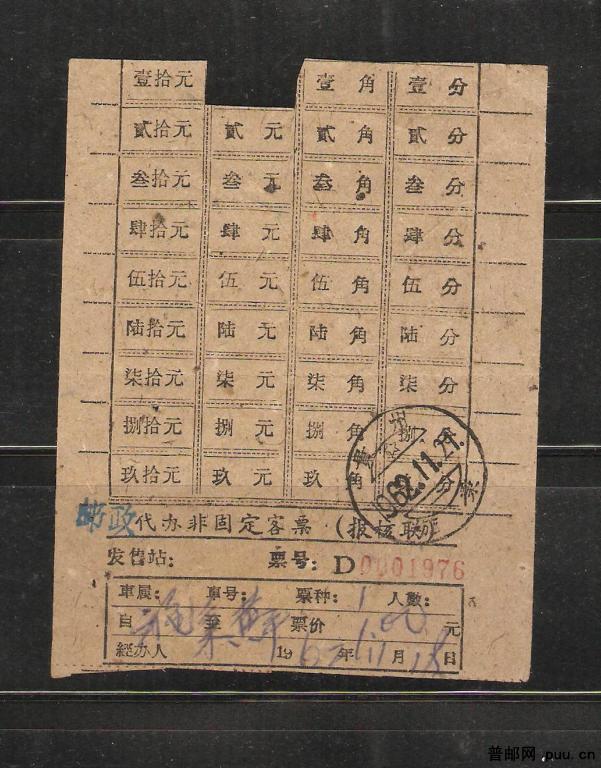 壹拾元 壹角 壹分
贰拾元 贰元 贰角 贰分
叁拾元 叁元 叁角 叁分
肆拾元 肆元 肆角 肆分
伍拾元 伍元 伍角 伍分
陆拾元 陆元 陆角 陆分
柒拾元 柒元 柒角 柒分
捌拾元 捌元 捌角 捌分
玖拾元 玖元 玖角 分
1962.11.21.
邮政代办非固定客票(报核联)
发售站: 票号: D 0001976
車属: 車号: 票种: 1 人數:
自 至 票价 1.00 元
経办人 1962年11月 日
普邮网.puu.cn